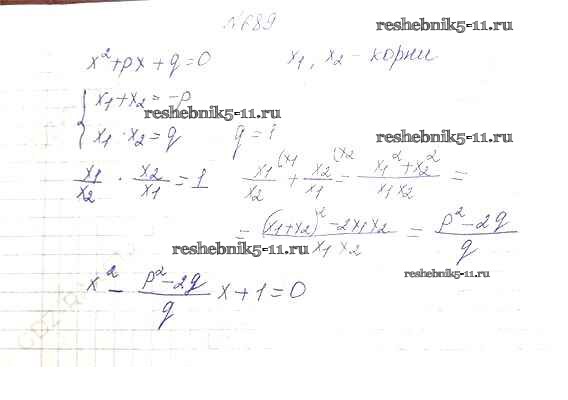 №689
reshebnik5-11.ru
x² + px + q = 0    x₁, x₂ – корни
x₁ + x₂ = -p
reshebnik5-11.ru
x₁ · x₂ = q    q = 1
reshebnik5-11.ru
x₁/x₂ · x₂/x₁ = 1    x₁/x₂ (x₁ + x₂/x₁ (x₂ = x₁² + x₂²/x₁x₂ =
= (x₁ + x₂)² - 2x₁x₂/x₁x₂ = p² - 2q/q
reshebnik5-11.ru
reshebnik5-11.ru
x² - p² - 2q/q x + 1 = 0